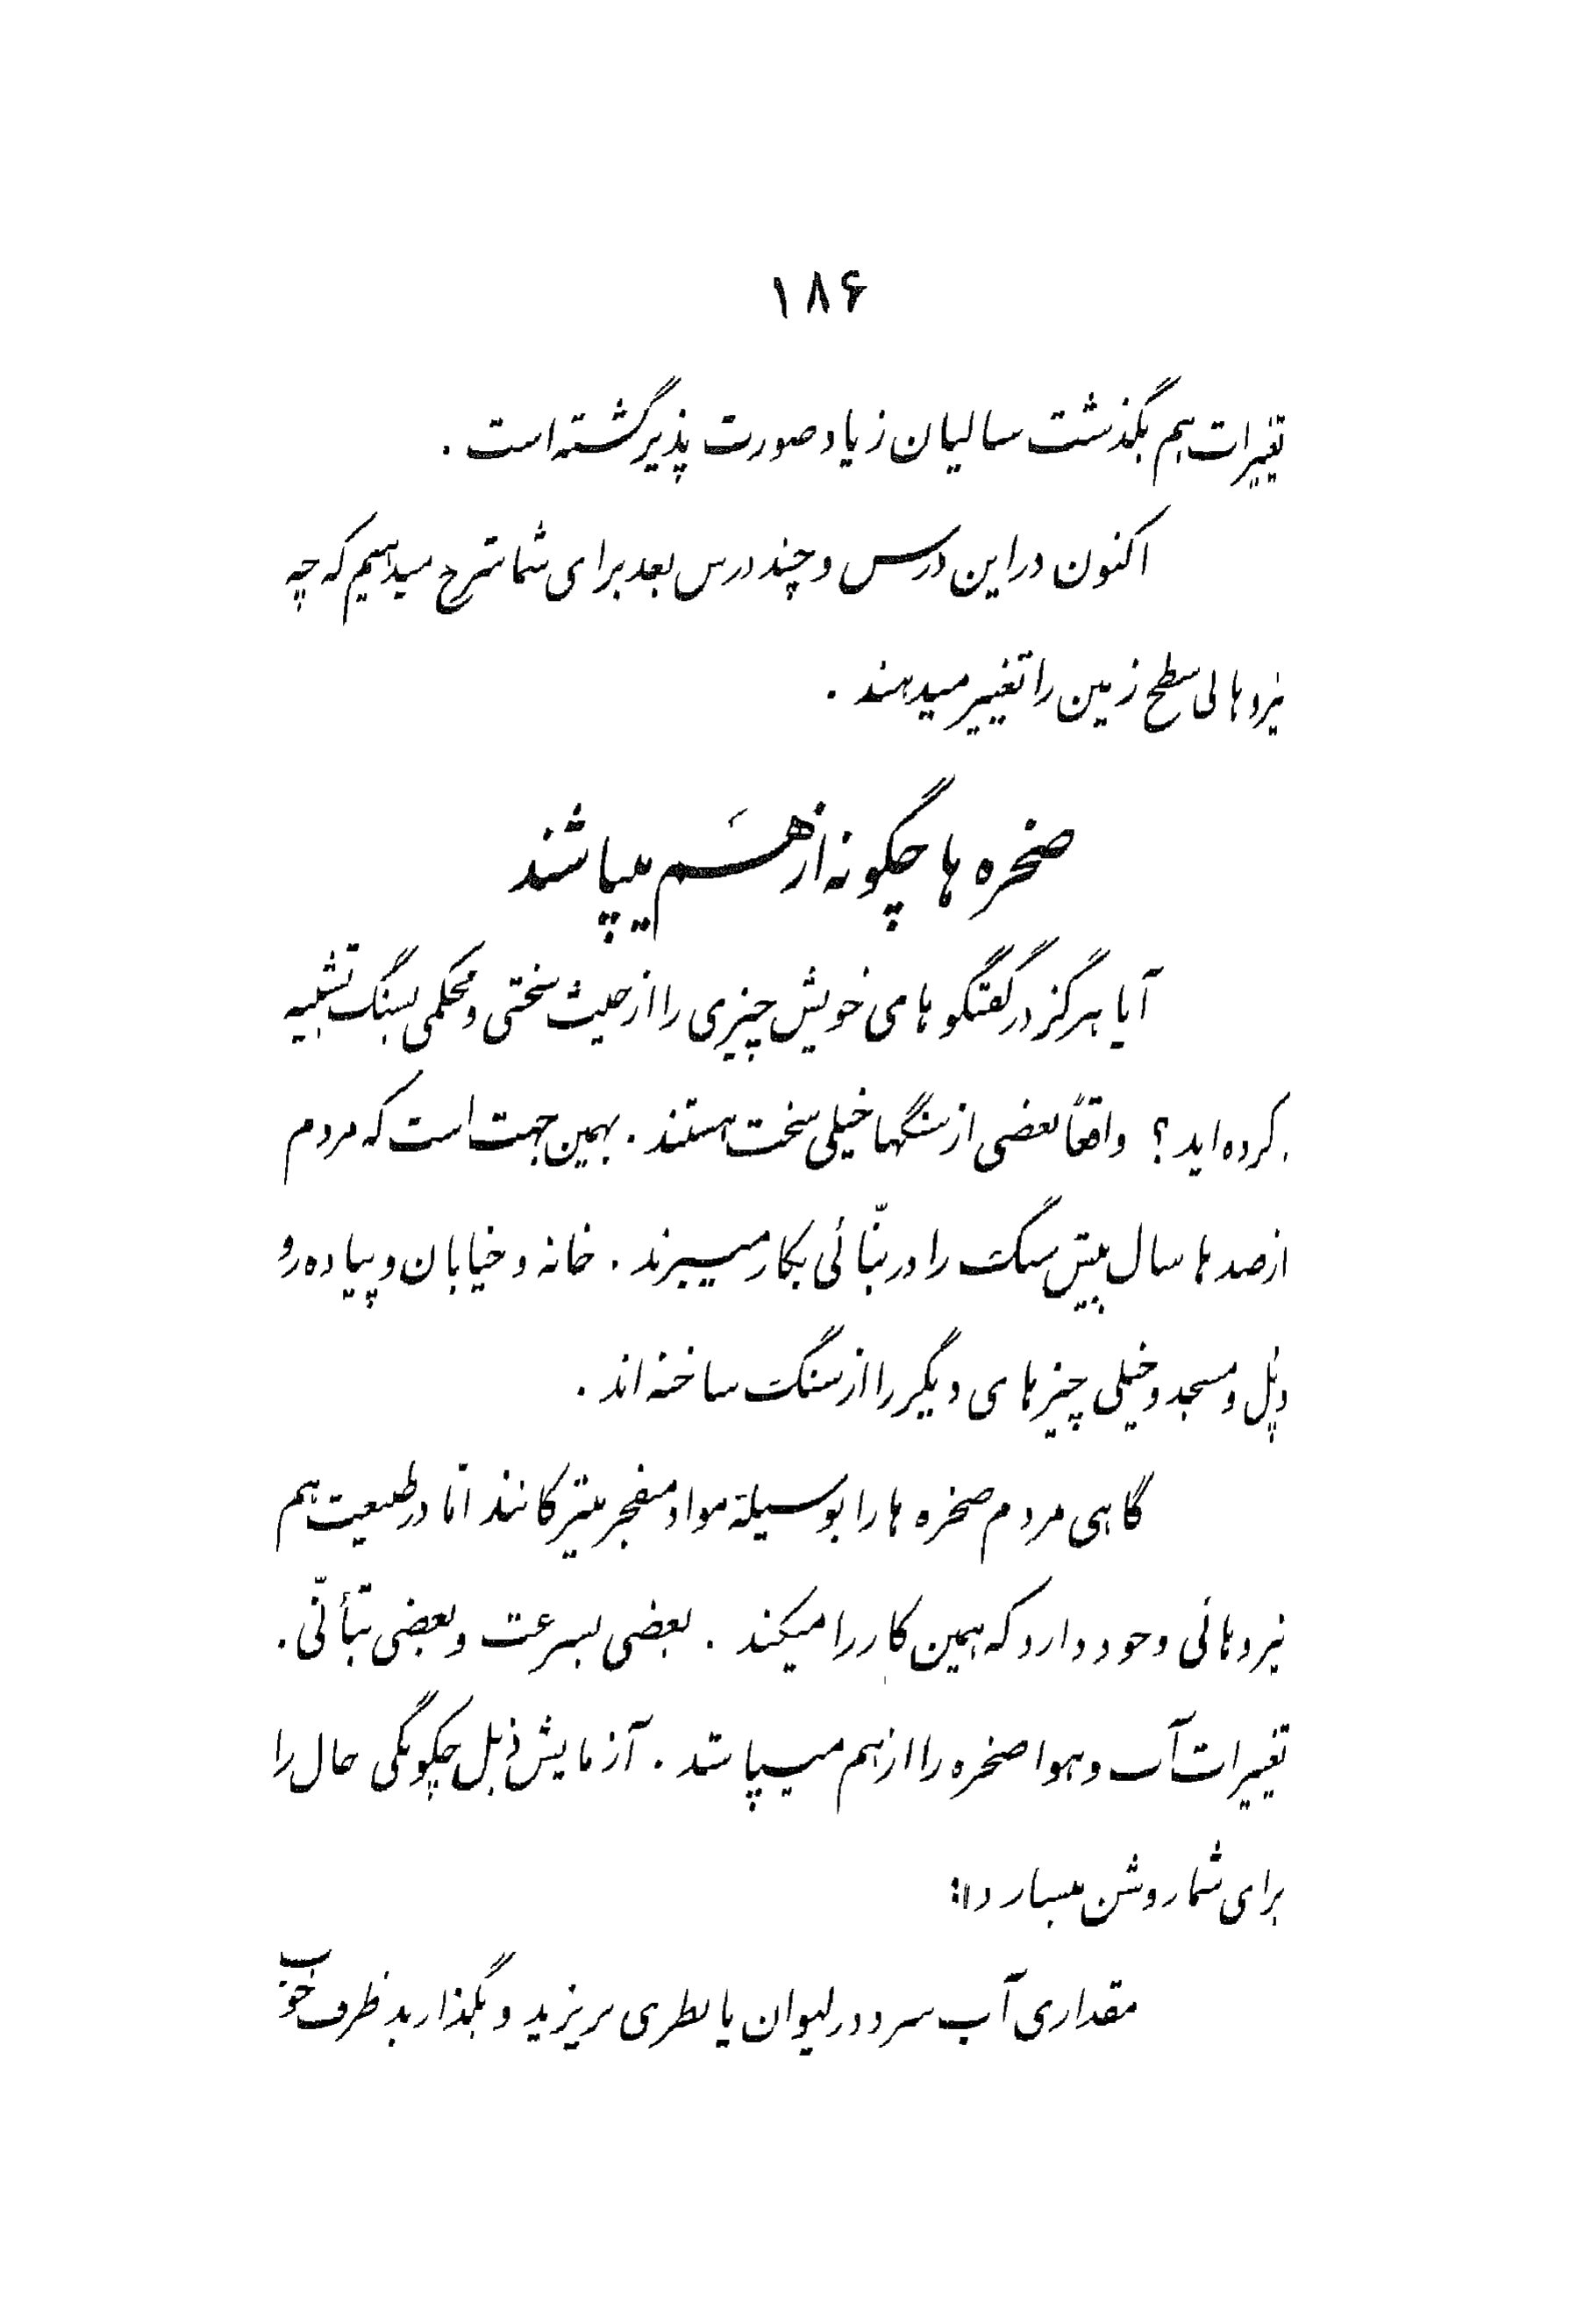 ۱۸۶
تغییرات هم بگذشت سالیان زیاد صورت پذیر گشته است .
اکنون در این درس و چند درس بعد برای شما شرح میدهیم که چه
نیروهائی سطح زمین را تغییر میدهند .
صخره ها چگونه از هَم میپاشند
آیا هرگز در گفتگو های خویش چیزی را از حیث سختی و محکمی بسنگ تشبیه
کرده اید ؟ واقعاً بعضی از سنگها خیلی سخت هستند . بهمین جهت است که مردم
از صد ها سال پیش سنگ را در بنّائی بکار میبرند . خانه و خیابان و پیاده رو
و پل و مسجد و خیلی چیزهای دیگر را از سنگ ساخته اند .
گاهی مردم صخره ها را بوسیلهٔ مواد منفجر میترکانند امّا در طبیعت هم
نیروهائی وجود دارد که همین کار را میکند . بعضی بسرعت و بعضی بتأنّی .
تغییرات آب و هوا صخره را از هم میپاشد . آزمایش ذیل چگونگی حال را
برای شما روشن میسازد :
مقداری آب سرد در لیوان یا بطری بریزید و بگذارید ظرف خوب